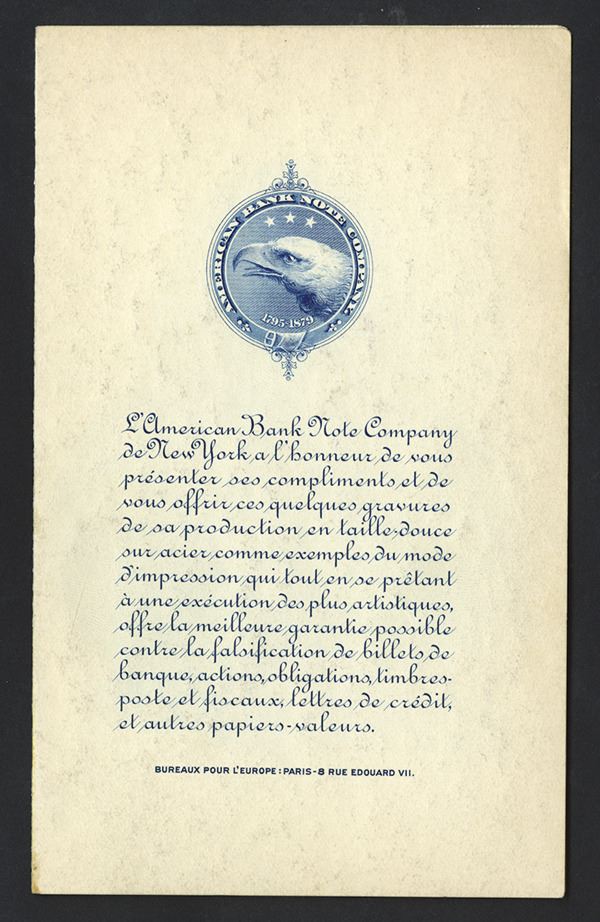 AMERICAN BANK NOTE COMPANY
1795-1879
L'American Bank Note Company
de New York a l'honneur de vous
présenter ses compliments et de
vous offrir ces quelques gravures
de sa production en taille-douce
sur acier comme exemples du mode
d'impression qui tout en se prêtant
à une exécution des plus artistiques,
offre la meilleure garantie possible
contre la falsification de billets de
banque, actions, obligations, timbres-
poste et fiscaux, lettres de crédit,
et autres papiers-valeurs.
BUREAUX POUR L'EUROPE: PARIS-8 RUE EDOUARD VII.